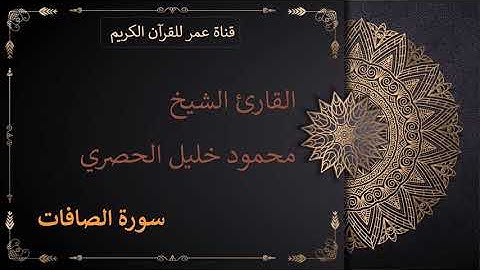 قناة عمر للقرآن الكريم
القارئ الشيخ
محمود خليل الحصري
سورة الصافات